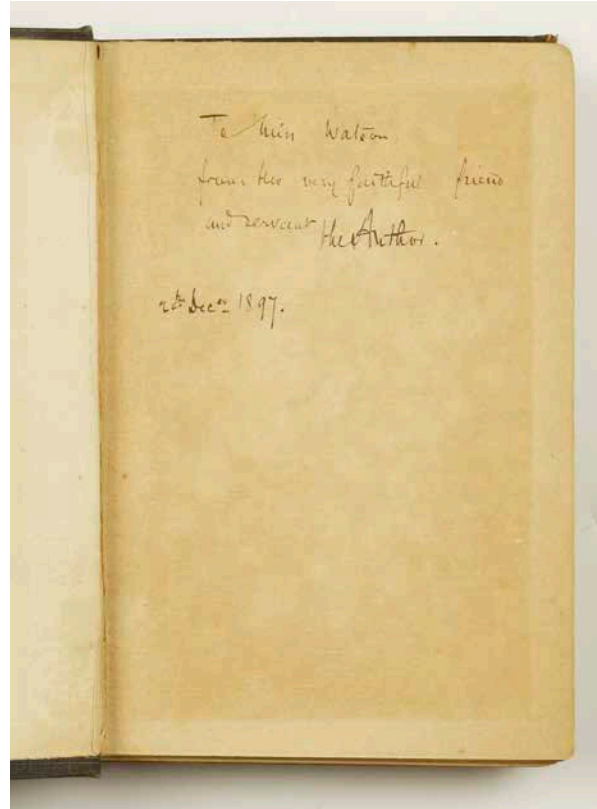 To Miss Watson
from her very faithful friend
and servant the Author.
2th Decer 1897.